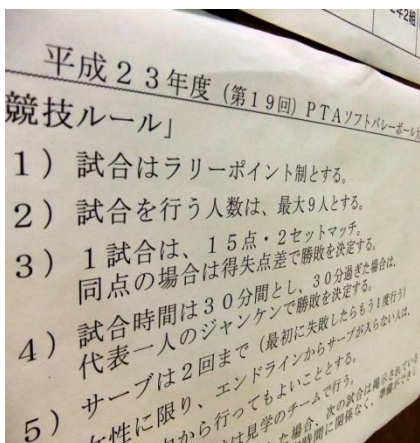 2年2組
平成23年度(第19回)PTAソフトバレーボール大
競技ルール」
1)試合はラリーポイント制とする。
2)試合を行う人数は、最大9人とする。
3)1試合は、15点・2セットマッチ。
同点の場合は得失点差で勝敗を決定する。
4)試合時間は30分間とし、30分過ぎた場合は、
代表一人のジャンケンで勝敗を決定する。
5)サーブは2回まで(最初に失敗したらもう1度行う)
女性に限り、エンドラインからサーブが入らない人は、
から行ってもよいこととする。
は見学のチームで行う。
した場合、次の試合は掲示されている
時間に関係なく、準備ができし